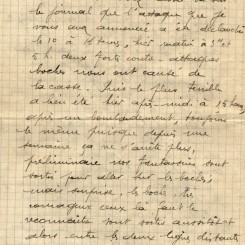 le journal que l'attaque que je
vous ai annoncée a été déclanché
le 10 à 18 heures, hier matin à 3h et
5h deux forts contre attaques
boches nous ont cause de
la casse. Mais le plus terrible
a bien été hier après-midi à 15 heures
après un bombardement, toujours
le même puisque depuis une
semaine ça ne s'arrête plus,
preliminaire nos fantassins sont
sortis pour aller sur les boches
mais surprise, les boches
ceux la pour le
reconnaitre sont sortis aussitôt et
alors entre les deux ligne distants